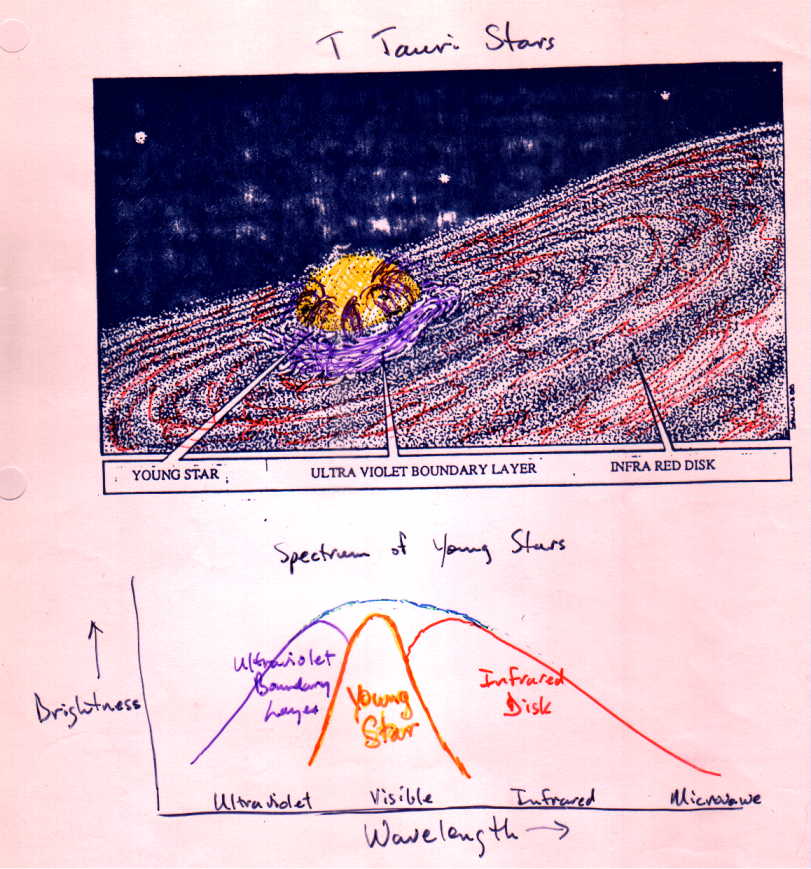 T Tauri Stars
YOUNG STAR
ULTRA VIOLET BOUNDARY LAYER
INFRA RED DISK
Spectrum of Young Stars
Brightness
Ultraviolet
Boundary
Layer
Young
Star
Infrared
Disk
Ultraviolet Visible Infrared Microwave
Wavelength